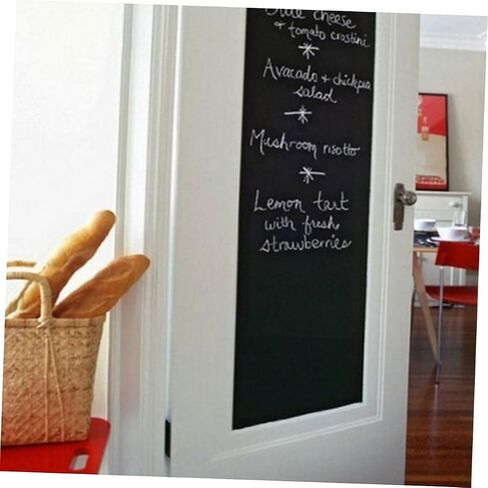 Blue cheese
& tomato crostini
Avacado + chickpea
salad
Mushroom risotto
Lemon tart
with fresh
strawberries